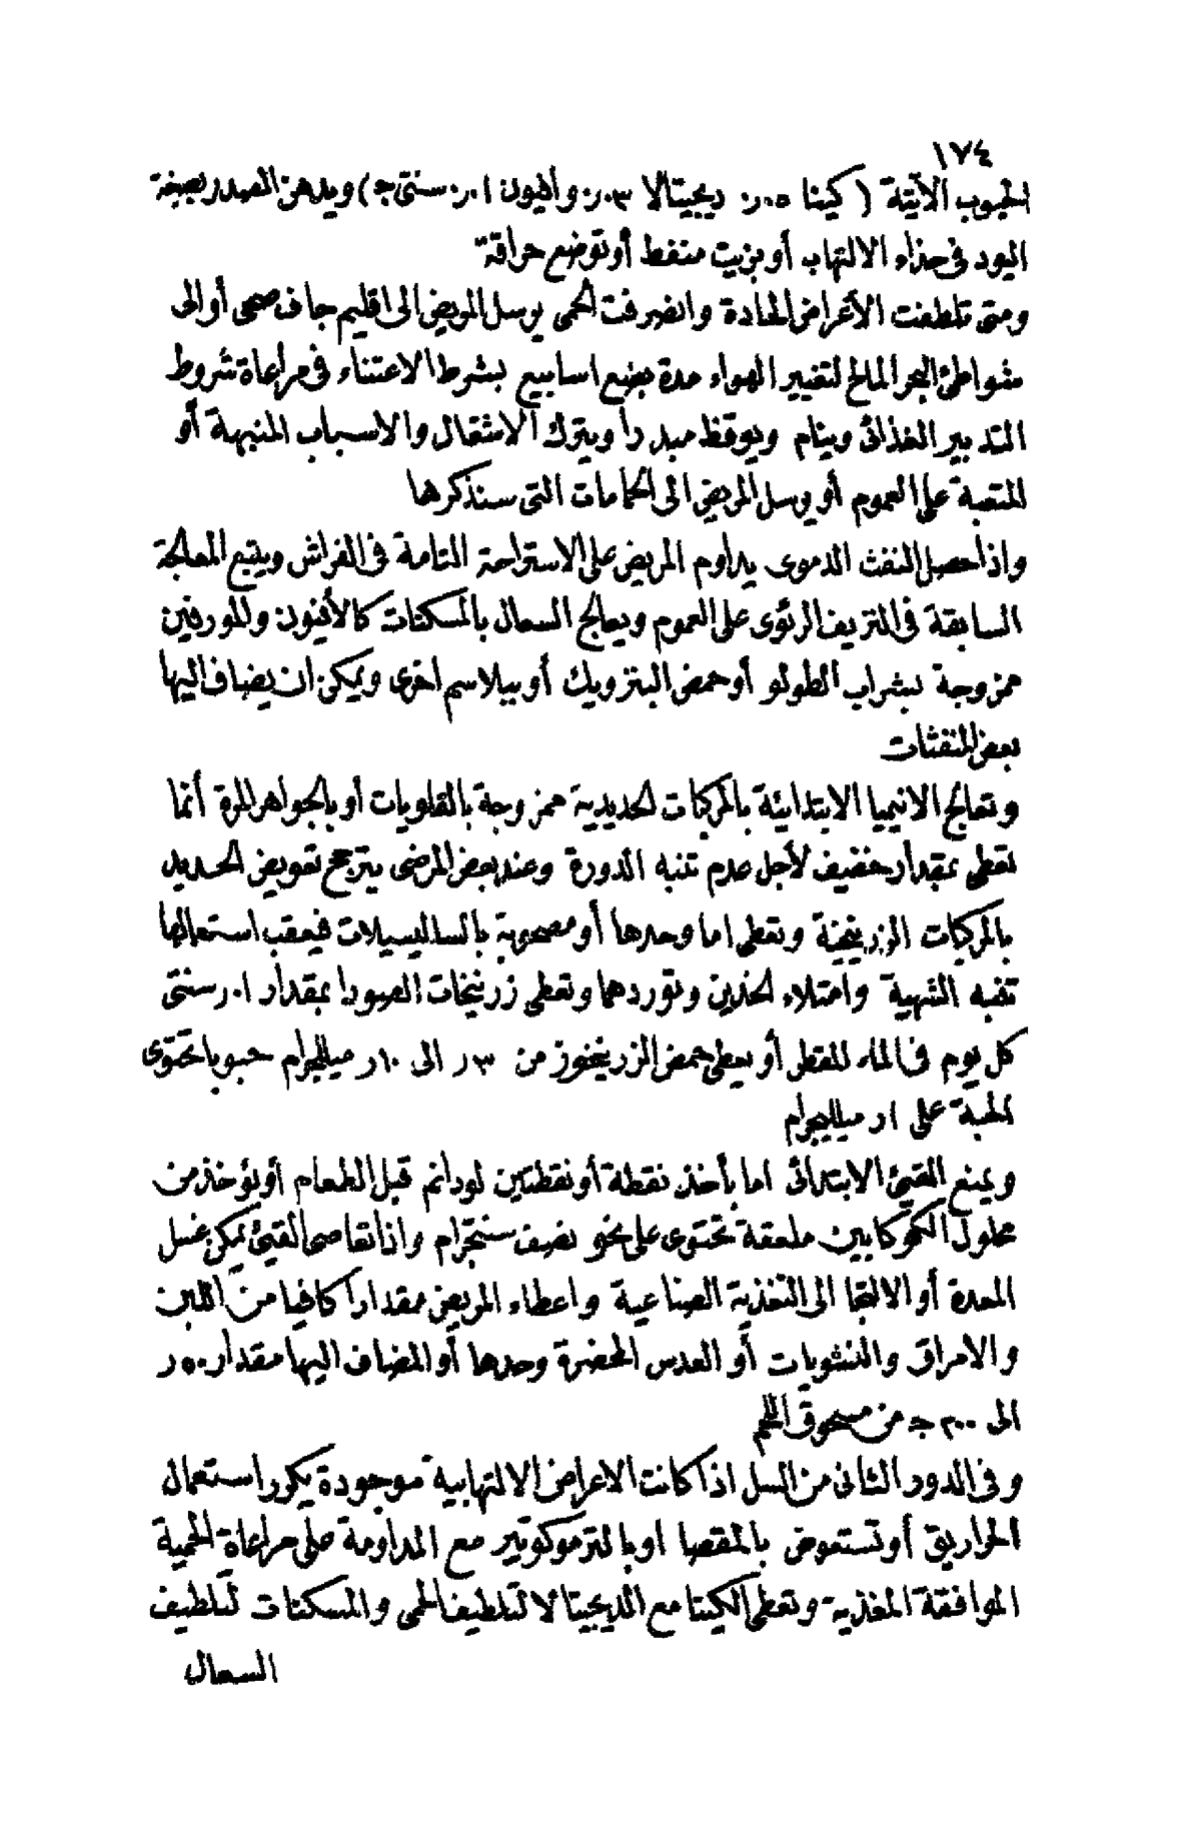 ١٧٤
الحبوب الآتية (كينا ٠٥ر. ديجيتالا ٠٣ر. وافيون ٠١ر. سنتى ج) ويدهن الصدر بصبغة
اليود فى حذاء الالتهاب أو بزيت منفط أو توضع حراقة
ومتى تلطفت الأعراض الحادة وانصرفت الحمى يرسل المريض الى اقليم جاف صحى أو الى
شواطئ البحر المالح لتغيير الهواء مدة بضع اسابيع بشرط الاعتناء فى مراعاة شروط
التدبير الغذائى وينام ويوقظ مبدراً ويترك الاشغال والاسباب المنبهة أو
المتعبة على العموم أو يرسل المريض الى الحمامات التى سنذكرها
واذا حصل النفث الدموى يداوم المريض على الاستراحة التامة فى الفراش ويتبع المعالجة
السابقة فى النزيف الرئوى على العموم ويعالج السعال بالمسكنات كالأفيون والمورفين
ممزوجة بشراب الطولو أو حمض البنزويك أو ببلاسم اخرى ويمكن ان يضاف اليها
بعض المنفثات
وتعالج الانيميا الابتدائية بالمركبات الحديدية ممزوجة بالقلويات أو بالجواهر المرة أنما
تعطى بمقدار خفيف لأجل عدم تنبه الدورة وعند بعض المرضى يترجح تعويض الحديد
بالمركبات الزرنيخية وتعطى اما وحدها أو مصحوبة بالساليسيلات فيعقب استعمالها
تنبه الشهية وامتلاء الخدين وتوردهما وتعطى زرنيخات الصودا بمقدار ٠١ر سنتى
كل يوم فى الماء المقطر أو يعطى حمض الزرنيخوز من ٣ر الى ١٠ر ميلليجرام حبوبا تحتوى
الحبة على ١ر ميلليجرام
ويمنع القيئ الابتدائى اما بأخذ نقطة أو نقطتين لودانم قبل الطعام أو يؤخذ من
محلول الكوكايين ملعقة تحتوى على نحو نصف سنتجرام واذا تعاصى القيئ يمكن غسل
المعدة أو الالتجا الى التغذية الصناعية واعطاء المريض مقداراً كافيا من اللبن
والامراق والنشويات أو العدس المحضرة وحدها أو المضاف اليها مقدار ٥٠ر
الى ٢٠٠ ج من مسحوق اللحم
وفى الدور الثانى من السل اذا كانت الاعراض الالتهابية موجودة يكرر استعمال
الحراريق أو تستعوض بالمقصا او بالترموكوتير مع المداومة على مراعاة الحمية
الموافقة المغذية وتعطى الكينا مع الديجيتالا لتلطيف الحمى والمسكنات لتلطيف
السعال